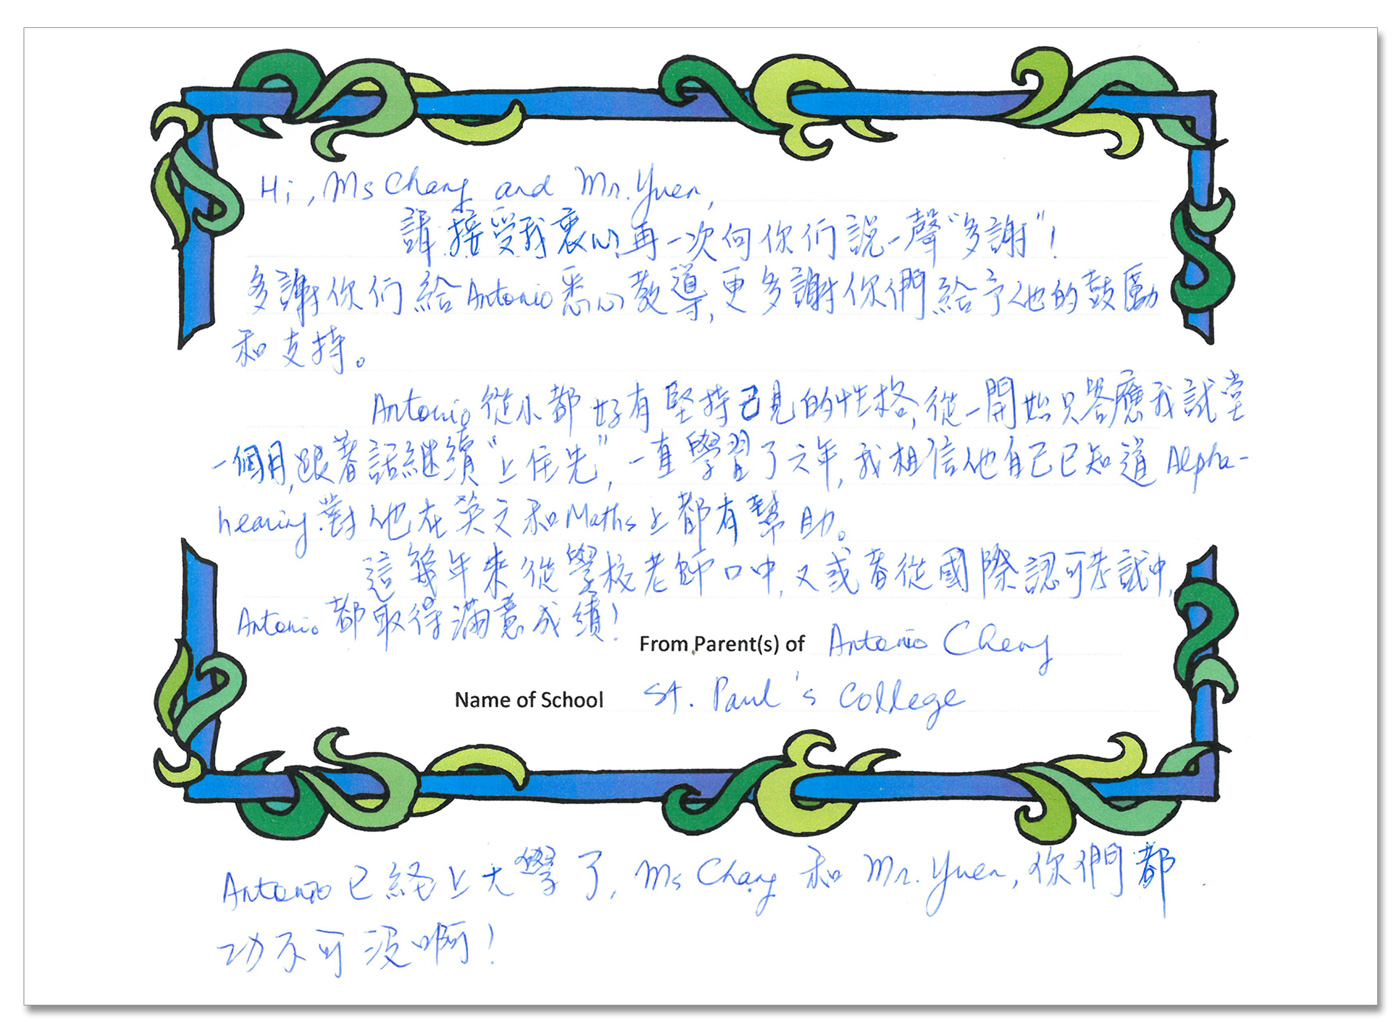 Hi, Ms Chang and Mr. Yuen,
請接受我衷心再一次向你们説一聲"多謝"!
多謝你们給Antonio悉心教導,更多謝你們給予他的鼓勵
和支持。
Antonio從小都好有堅持己見的性格,從一開始只答應我試堂
一個月,跟著話繼續"上住先",一直學習了六年,我相信他自己已知道Alpha-
hearing對他在英文和Maths上都有幫助。
這幾年來從學校老師口中,又或者從國際認可考試中,
Antonio都取得滿意成績!
From Parent(s) of Antonio Cheng
Name of School St. Paul's College
Antonio已經上大學了, Ms Chang 和 Mr. Yuen, 你們都
功不可沒啊!